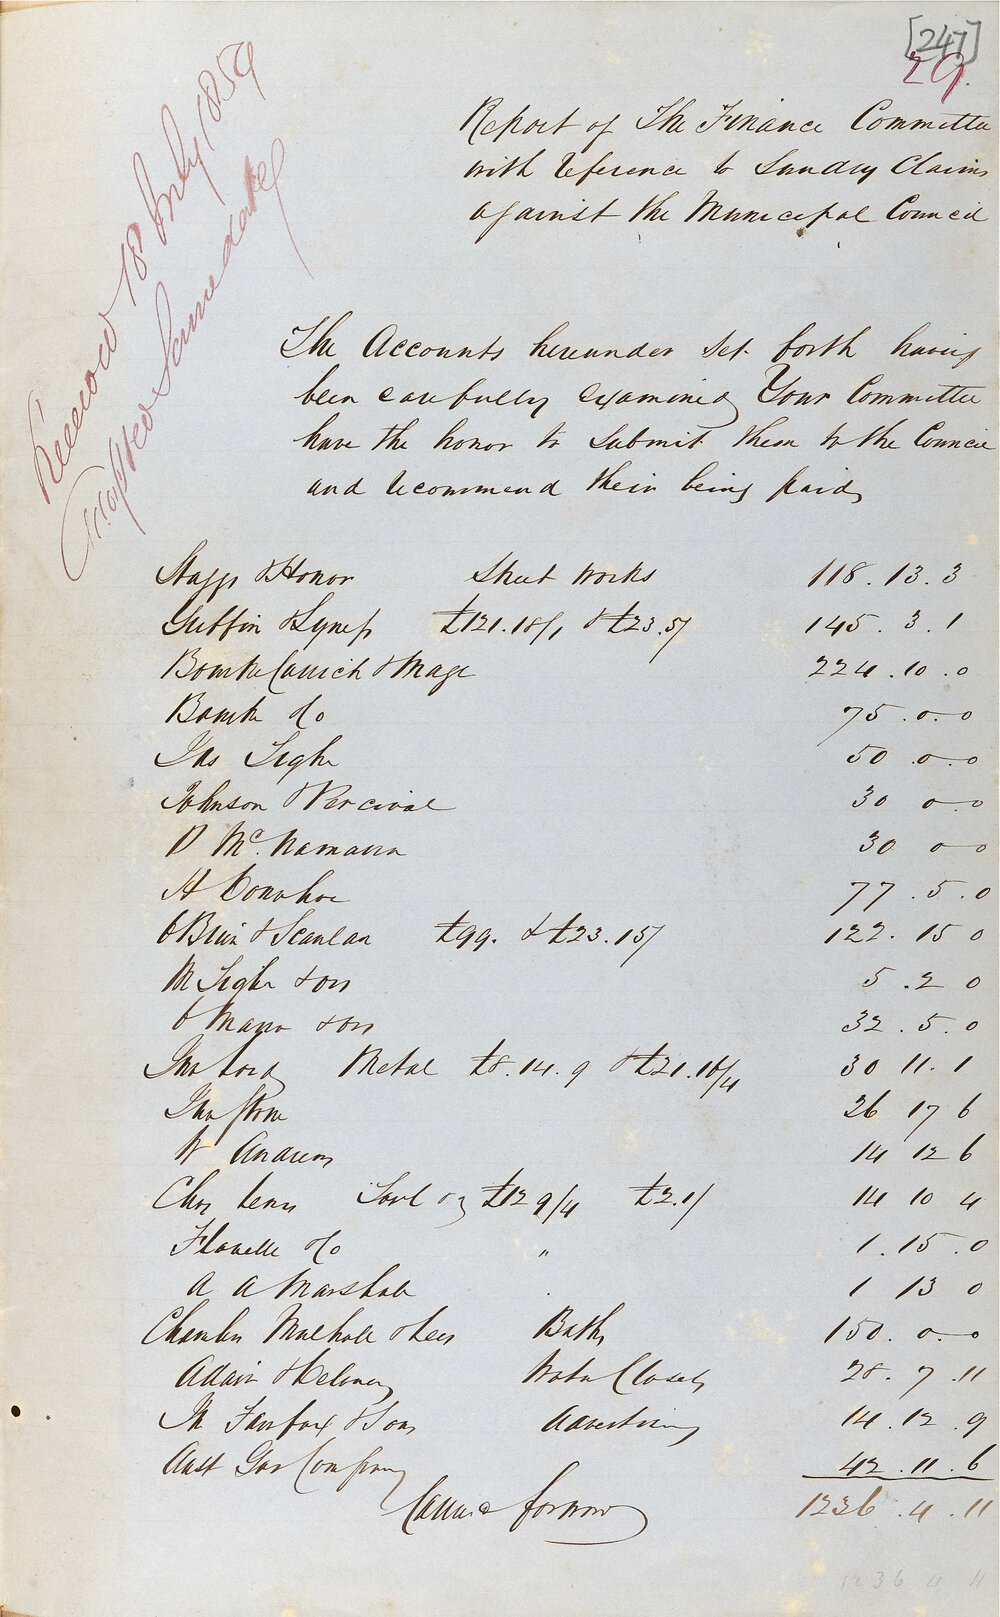 [247]
29.
Received 18 July 1859
Adopted Same date
Report of The Finance Committee
with reference to Sundry Claims
against the Municipal Council
The Accounts hereunder set forth having
been carefully examined Your Committee
have the honor to submit them to the Council
and recommend their being paid,
Stagg & Honor Street Works 118.13.3
Griffin & Lynch £121.18/1 & £23.5/ 145.3.1
Bourke Carrick & Mage 224.10.0
Bourke & Co 75.0.0
Jas Tighe 50.0.0
Johnson & Percival 30 0-0
D McNamara 30 0-0
H Donohoe 77.5.0
O'Brien & Scanlan £99. & £23.15/ 122.15 0
M Tighe & ors 5.2 0
O Mara & ors 32.5.0
Jno Lord Metal £8.14.9 & £21.16/4 30 11.1
Jno 26 17 6
W Andrews 14 12 6
Chas £12 9/4 £2.1/ 14 10 4
Flavelle & Co " 1.15.0
A A Marshall 1 13 0
Mulhall & Baths 150.0.0
Adair & Delaney Water Closets 28.7.11
Jn Fairfax & Sons Advertising 14.12.9
Aust Gas Company 42.11.6
Carried forward 1236.4.11
1236 4 11